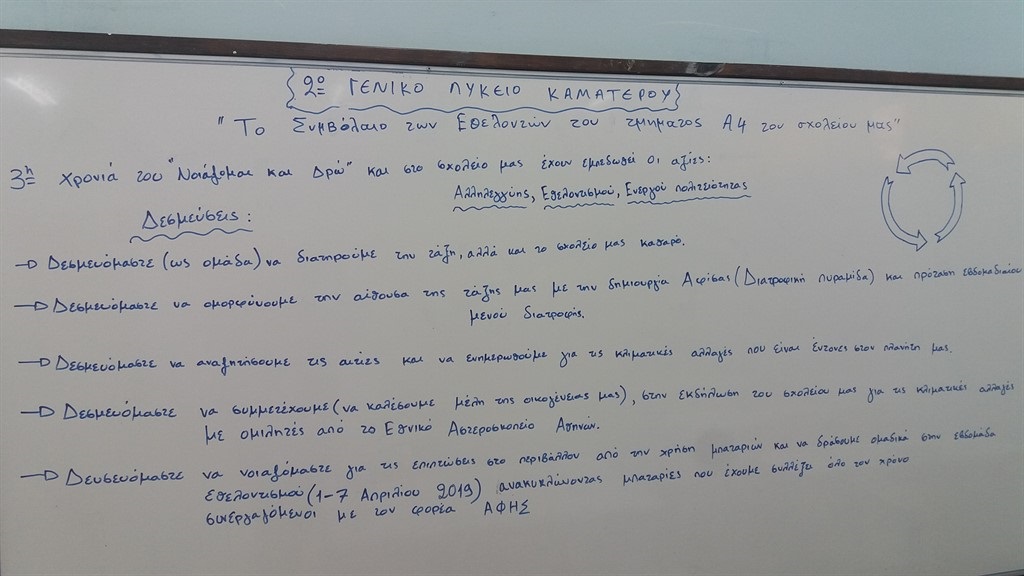 2ο ΓΕΝΙΚΟ ΛΥΚΕΙΟ ΚΑΜΑΤΕΡΟΥ
"Το Συμβόλαιο των Εθελοντών του τμηματος Α4 του σχολείου μας"
3η χρονιά του "Νοιάζομαι και Δρω" και στο σχολείο μας έχουν εμπεδωθεί οι αξίες:
Αλληλεγγύης, Εθελοντισμού, Ενεργού πολιτειότητας
Δεσμεύσεις:
Δεσμευόμαστε (ως ομάδα) να διατηρούμε την τάξη, αλλά και το σχολείο μας καθαρό.
Δεσμευόμαστε να ομορφύνουμε την αίθουσα της τάξης μας με την δημιουργία Αφίσας (Διατροφική πυραμίδα) και πρόταση εβδομαδιαίου
μενού διατροφής.
Δεσμευόμαστε να αναζητήσουμε τις αιτίες και να ενημερωθούμε για τις κλιματικές αλλαγές που είναι έντονες στον πλανήτη μας.
Δεσμευόμαστε να συμμετέχουμε (να καλέσουμε μέλη της οικογένειας μας), στην εκδήλωση του σχολείου μας για τις κλιματικές αλλαγές
με ομιλητές από το Εθνικό Αστεροσκοπείο Αθηνών.
Δευσευόμαστε να νοιαζόμαστε για τις επιπτώσεις στο περιβάλλον από την χρήση μπαταριών και να δράσουμε ομαδικά στην εβδομάδα
Εθελοντισμού (1-7 Απριλίου 2019) ανακυκλώνοντας μπαταρίες που έχουμε συλλέξει όλο τον χρόνο
συνεργαζόμενοι με τον φορέα ΑΦΗΣ